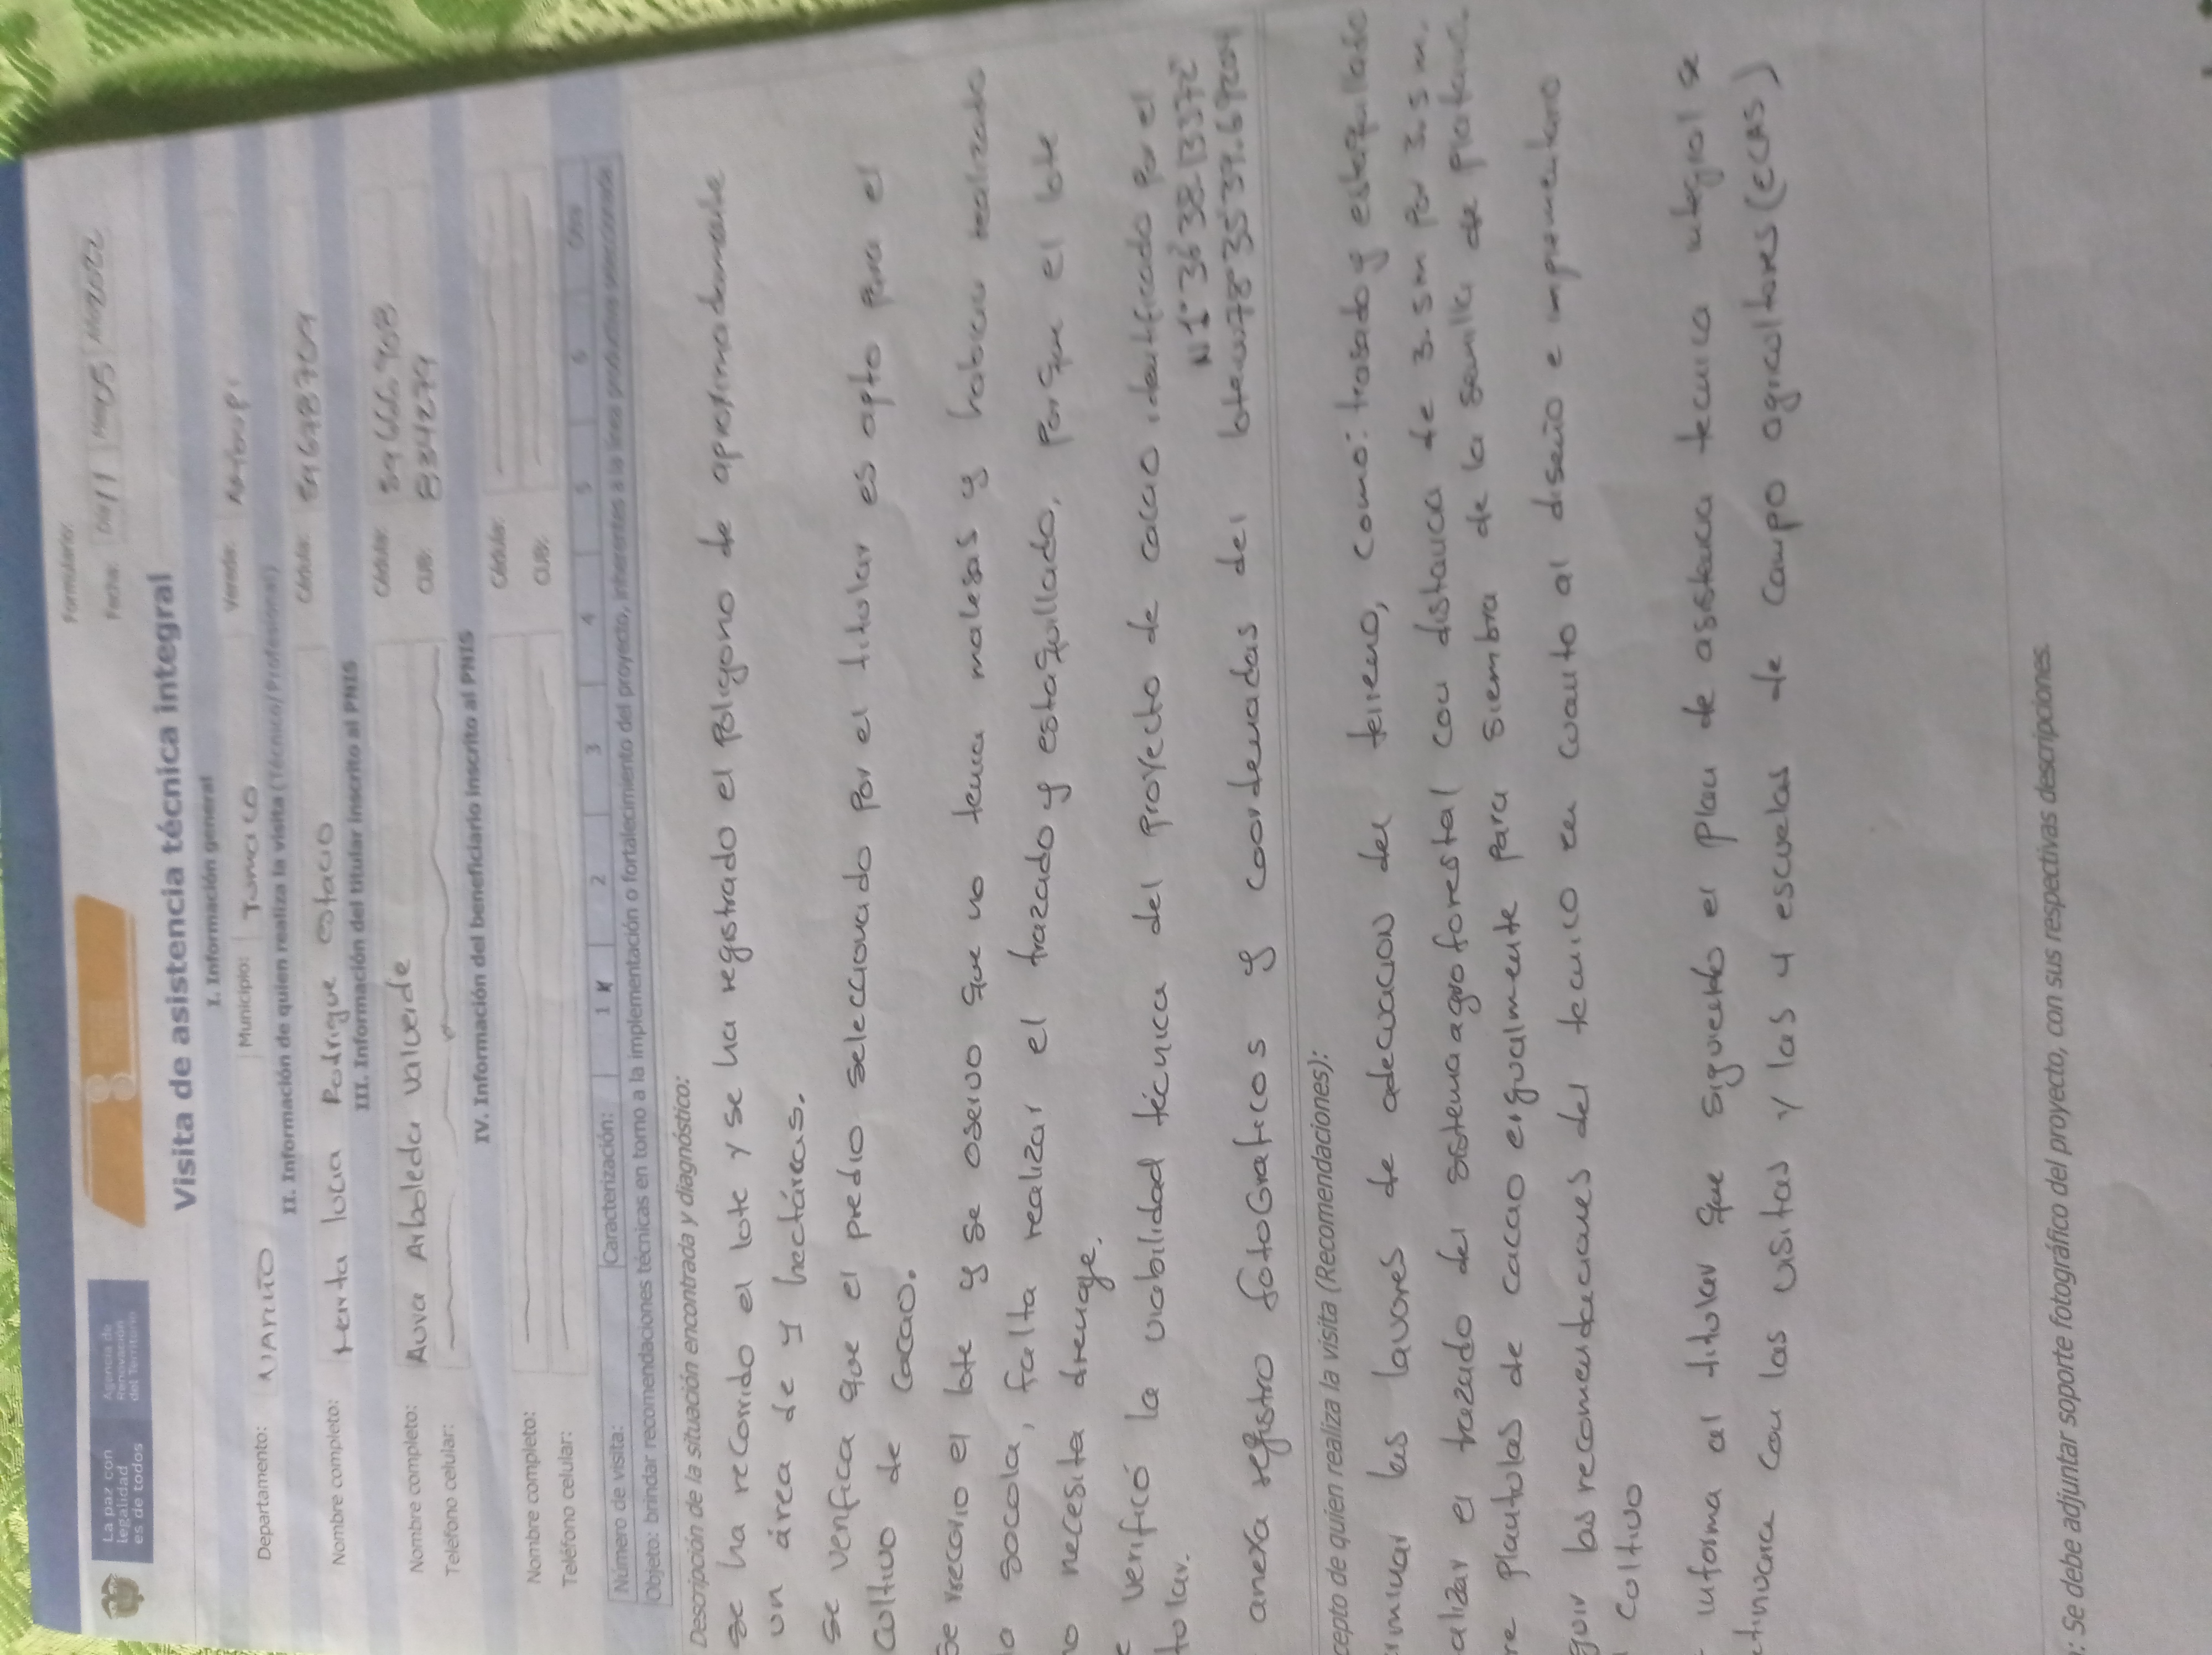 La paz con
legalidad
es de todos
Agencia de
Renovación
del Territorio
Formulario:
Fecha: Día 11 Mes 05 Año 2022
Visita de asistencia técnica integral
I. Información general
Departamento: NARIÑO Municipio: Tumaco Vereda:
II. Información de quien realiza la visita (Técnico/Profesional)
Nombre completo: Lucia Rodrigue Cédula:
III. Información del titular inscrito al PNIS
Nombre completo: Auva Arboleda valverde Cédula: 59666908
Teléfono celular: CUB: 8334279
IV. Información del beneficiario inscrito al PNIS
Nombre completo: Cédula:
Teléfono celular: CUB:
Número de visita: Caracterización: 1 X 2 3 4 5 6 Otra
Objeto: brindar recomendaciones técnicas en torno a la implementación o fortalecimiento del proyecto, inherentes a la línea productiva seleccionada
Descripción de la situación encontrada y diagnóstico:
se ha recorrido el lote y se ha registrado el Poligono de aproximadamente
un área de y hectáreas.
se verifica que el predio seleccionado por el titular es apto para el
cultivo de cacao.
Se rrecorio el lote y se observo que no tenia malesas y habian realizado
la socola, falta realizar el trazado y estaquillado, Porque el lote
no necesita drenage.
verificó la viabilidad técnica del proyecto de cacao identificado por el
tolar.
N1°36'38.
anexa registro fotoGraficos y coordenadas del
cepto de quien realiza la visita (Recomendaciones):
las lavores de adecuacion del terreno, como: trasado y estaquillado
alizar el trazado del sistema agroforestal con distancia de 3.5m por 3.5m.
re plantulas de cacao e igualmente para siembra de la semilla de platano.
guir las recomendaciones del tecnico en cuanto al diseño e
cultivo
informa al titular que siguiendo el plan de asistencia tecnica integral se
con las visitas y las 4 escuelas de campo agricultores (ECAS)
: Se debe adjuntar soporte fotográfico del proyecto, con sus respectivas descripciones.